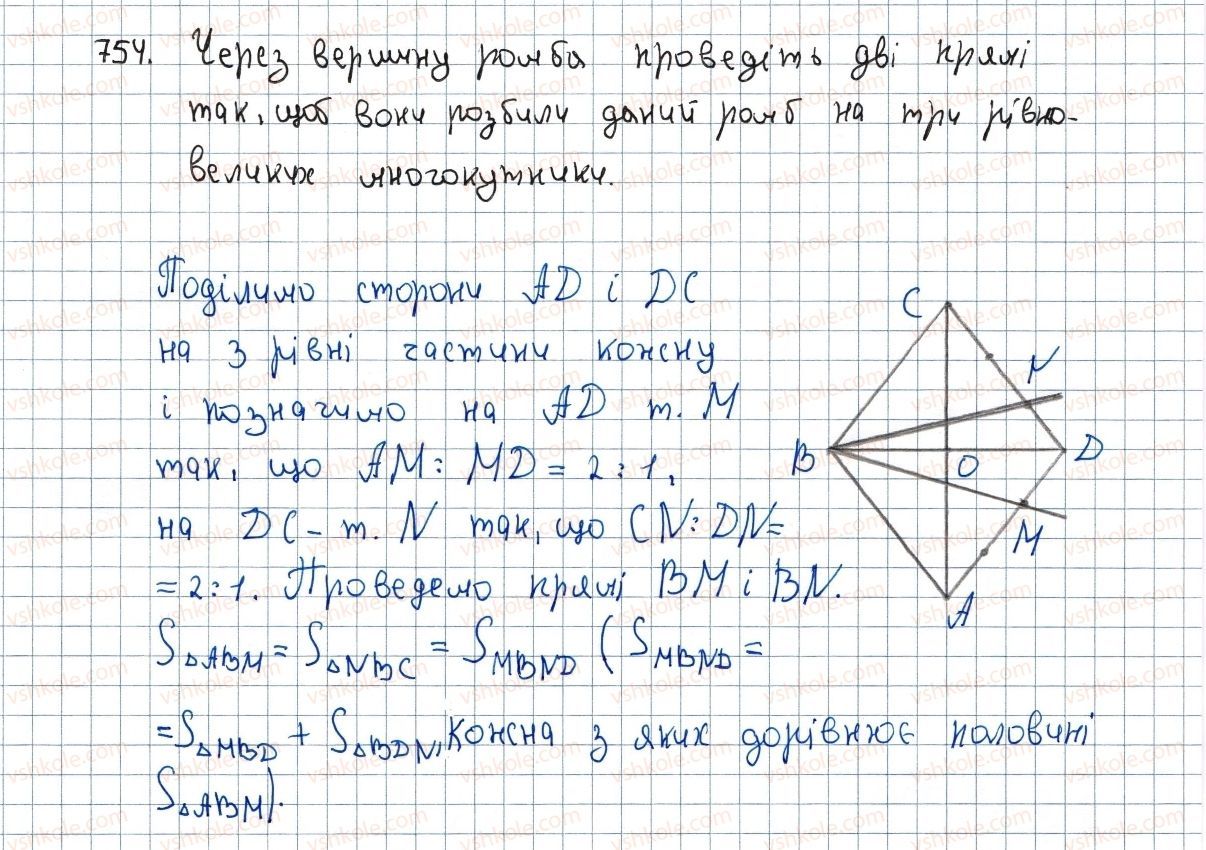 754. Через вершину ромба проведіть дві прямі
так, щоб вони розбили даний ромб на три рівно-
великих многокутники.
Поділимо сторони AD і DC
на 3 рівні частини кожну
і позначимо на AD т. M
так, що AM : MD = 2 : 1,
на DC – т. N так, що CN : DN =
= 2 : 1. Проведемо прямі BM і BN.
S△ABM = S△NBC = SMBND (SMBND =
= S△MBD + S△BDN, кожна з яких дорівнює половині
S△ABM).
C
N
B
O
D
M
A
vshkole.com